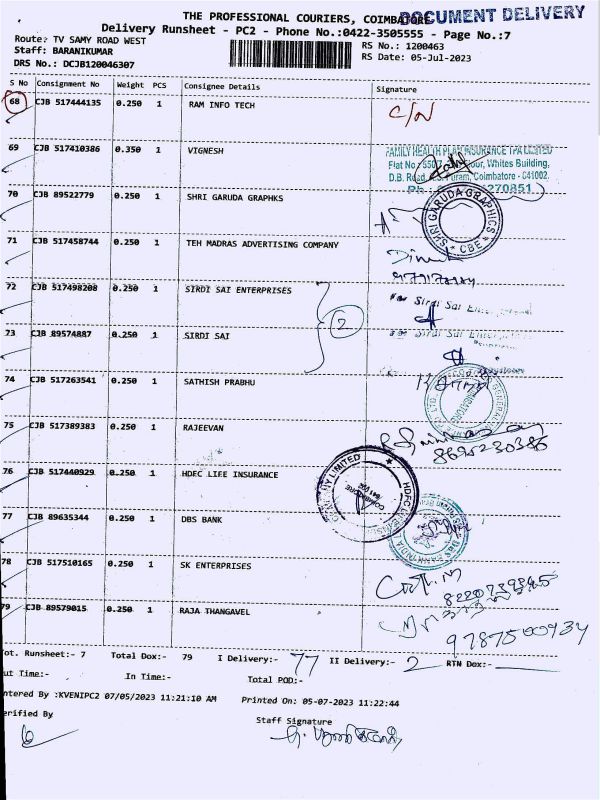 THE PROFESSIONAL COURIERS, COIMBATORE
DOCUMENT DELIVERY
Delivery Runsheet - PC2 - Phone No.:0422-3505555 - Page No.:7
Route: TV SAMY ROAD WEST
RS No.: 1200463
Staff: BARANIKUMAR
RS Date: 05-Jul-2023
DRS No.: DCJB120046307
S No Consignment No Weight PCS Consignee Details Signature
68 CJB 517444135 0.250 1 RAM INFO TECH C/N
69 CJB 517410386 0.350 1 VIGNESH
FAMILY HEALTH PLAN INSURANCE TPA LIMITED
Flat No Whites Building,
D.B. Road, Puram, Coimbatore - 641002.
70 CJB 89522779 0.250 1 SHRI GARUDA GRAPHKS
SHRI GARUDA GRAPHICS * CBE *
71 CJB 517458744 0.250 1 TEH MADRAS ADVERTISING COMPANY
72 CJB 517498208 0.250 1 SIRDI SAI ENTERPRISES
For Sirdi Sai
2
73 CJB 89574887 0.250 1 SIRDI SAI
Sirdi Sai
74 CJB 517263541 0.250 1 SATHISH PRABHU
75 CJB 517389383 0.250 1 RAJEEVAN
8695230386
76 CJB 517440929 0.250 1 HDFC LIFE INSURANCE
LIMITED * HDFC
COIMBATORE
77 CJB 89635344 0.250 1 DBS BANK
DBS BANK INDIA
78 CJB 517510165 0.250 1 SK ENTERPRISES
79 CJB 89579015 0.250 1 RAJA THANGAVEL
9787500934
Tot. Runsheet:- 7 Total Dox:- 79 I Delivery:- 77 II Delivery:- 2 RTN Dox:-
Out Time:- In Time:- Total POD:-
Entered By :KVENIPC2 07/05/2023 11:21:10 AM Printed On: 05-07-2023 11:22:44
Verified By Staff Signature